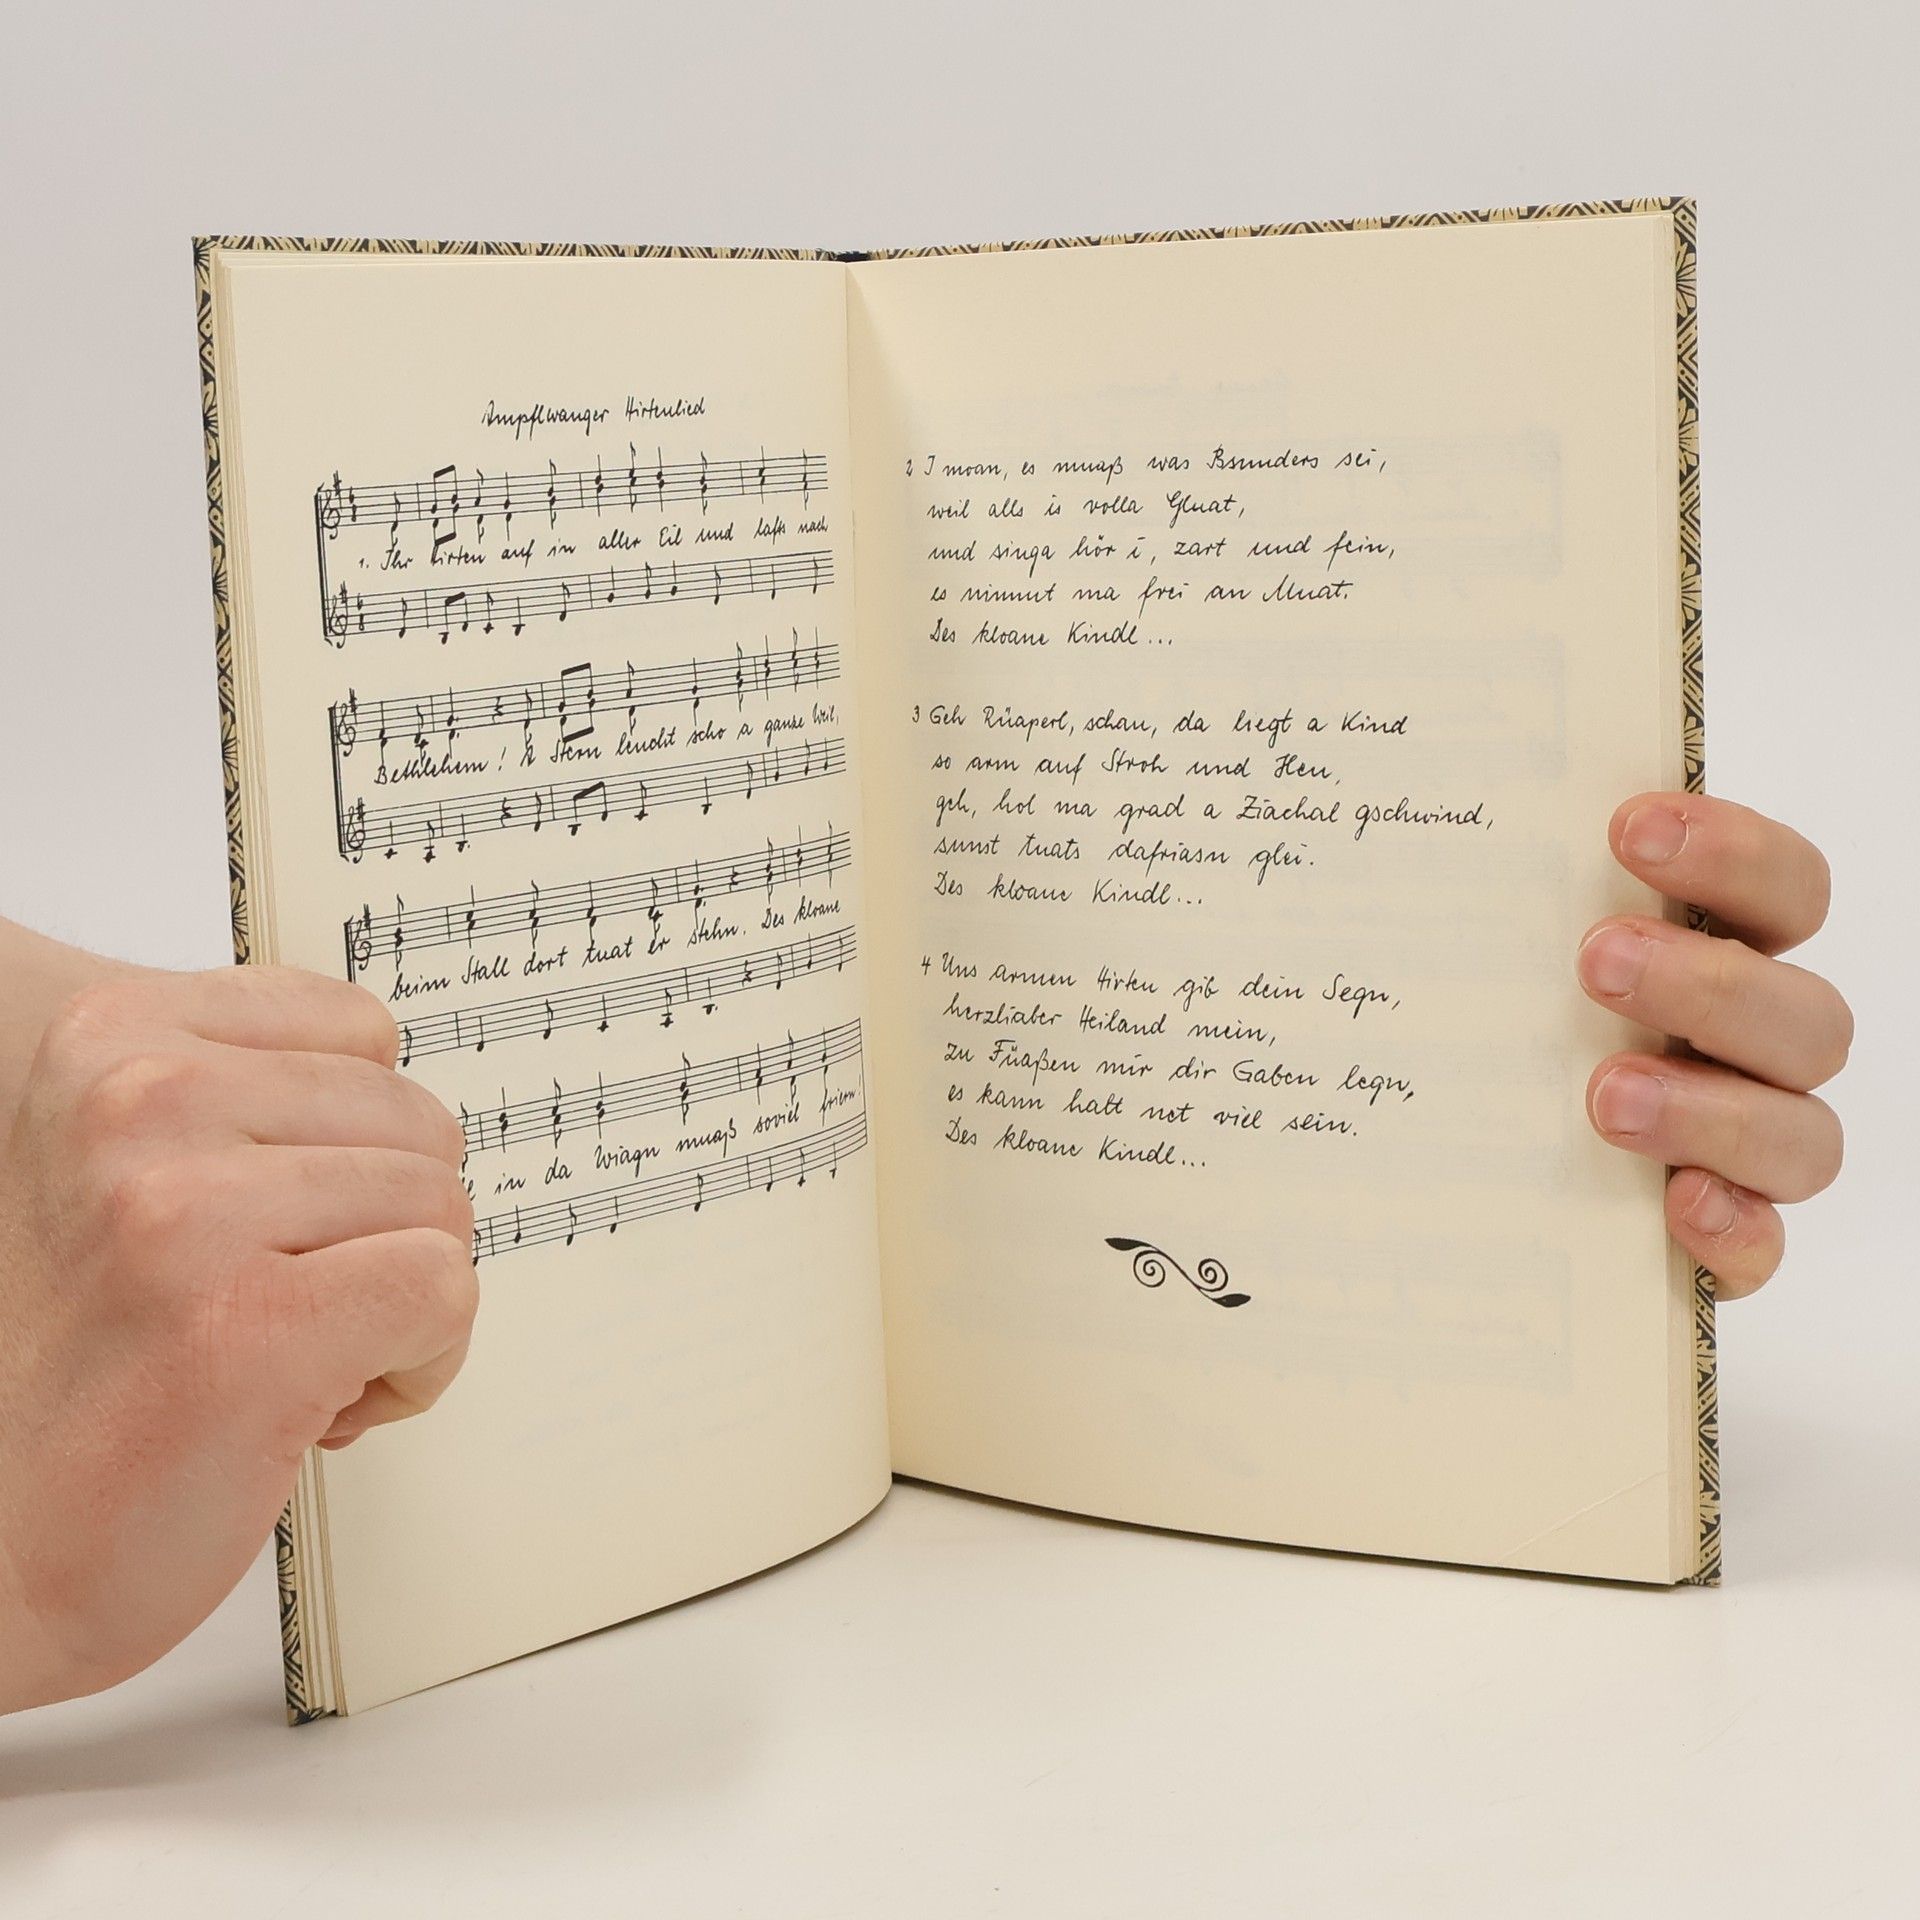 Ampflwanger Hirtenlied
1. Ihr Hirten auf in aller Eil und lafts nach
Bethlehem! A Stern leucht scho a ganze Weil,
beim Stall dort tuat er stehn. Des kloane
in da Wiagn muaß soviel friern!
2 I moan, es muaß was Bsunders sei,
weil alls is volla Gluat,
und singa hör i, zart und fein,
es nimmt ma frei an Muat.
Des kloane Kindl...
3 Geh Rüaperl, schau, da liegt a Kind
so arm auf Stroh und Heu,
geh, hol ma grad a Ziachal gschwind,
sunst tuats dafriasn glei.
Des kloane Kindl...
4 Uns armen Hirten gib dein Segn,
herzliaber Heiland mein,
zu Füaßen mir dir Gaben legn,
es kann halt net viel sein.
Des kloane Kindl...